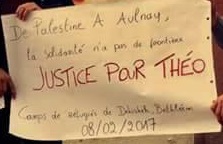 De Palestine A Aulnay,
la solidarité n'a pas de frontières
JUSTICE POUR THÉO
Camps de réfugiés de Deheisheh, Bethléem
08/02/2017